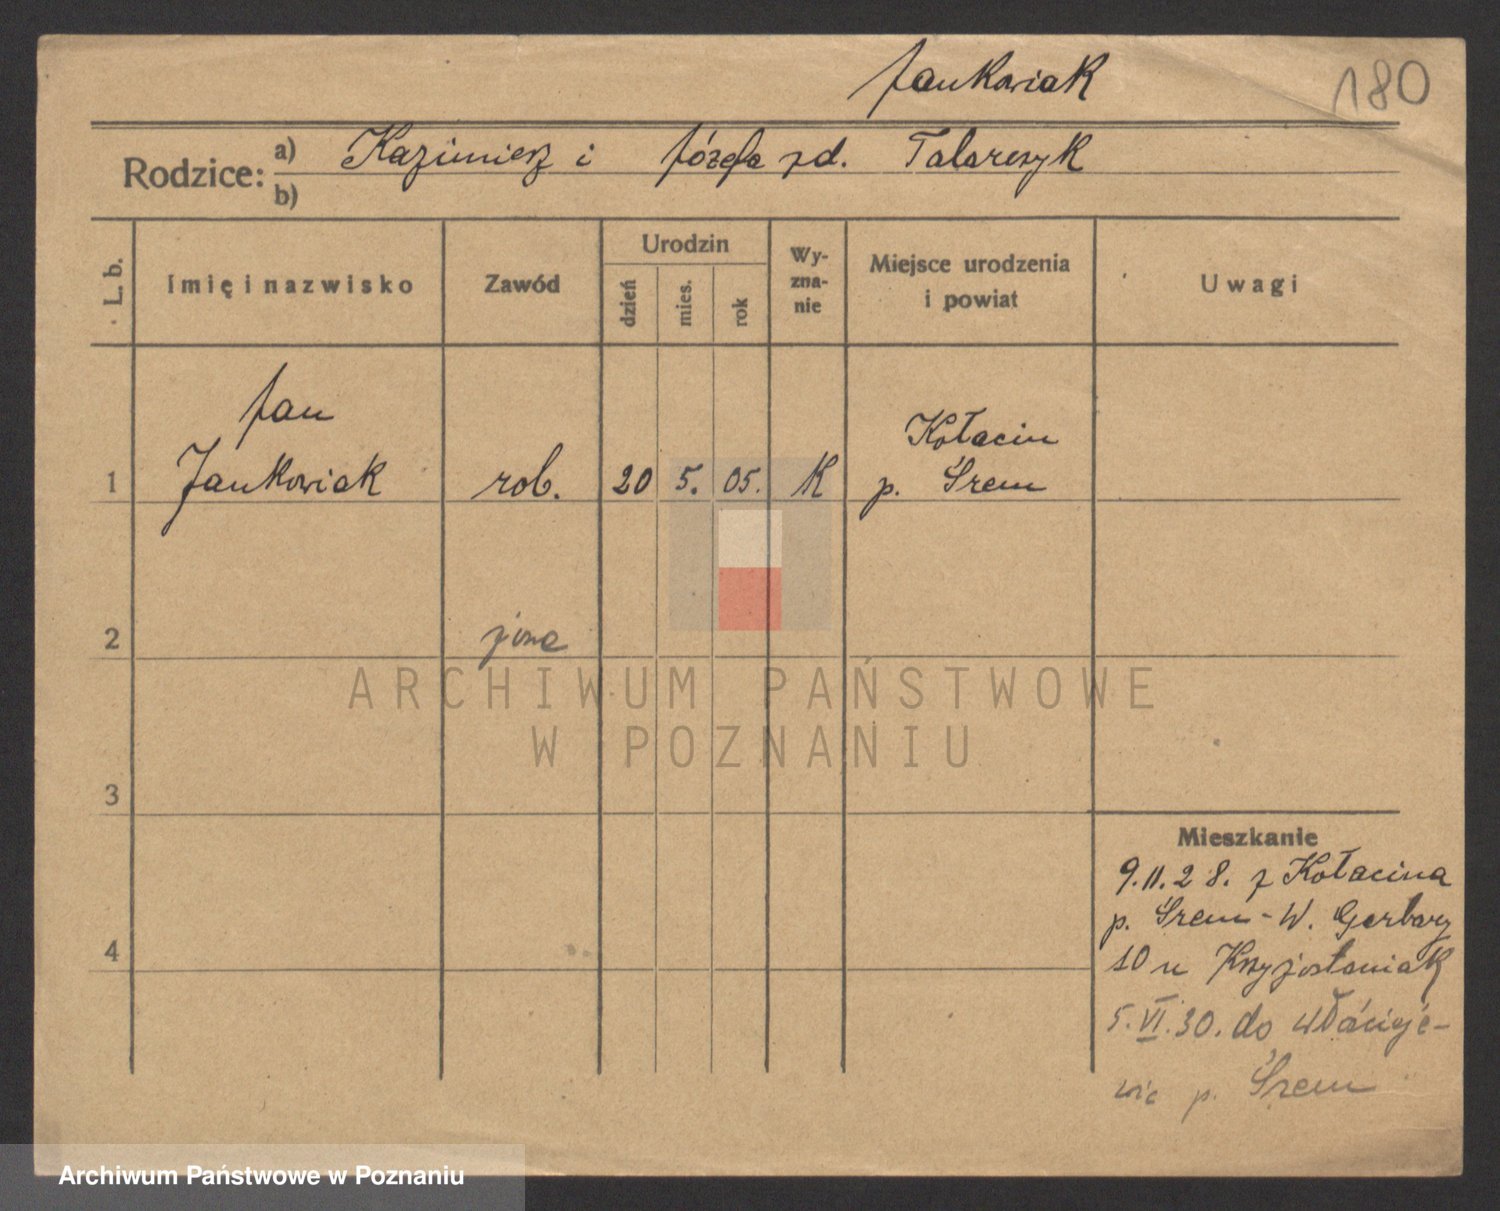 Jankowiak
180
Rodzice: a) Kazimierz i Józefa zd. Talarczyk
b)
L. b.
Imię i nazwisko
Zawód
Urodzin
dzień
mies.
rok
Wy-
zna-
nie
Miejsce urodzenia
i powiat
Uwagi
Jan
1 Jankowiak rob. 20 5. 05. K
Kołacin
p. Śrem
2 żona
3
4
Mieszkanie
9.11.28. z Kołacina
p. Śrem - W. Garbary
10 u Krzyżostaniak
5.VI.30. do Włościeje-
wic p. Śrem
ARCHIWUM PAŃSTWOWE
W POZNANIU
Archiwum Państwowe w Poznaniu